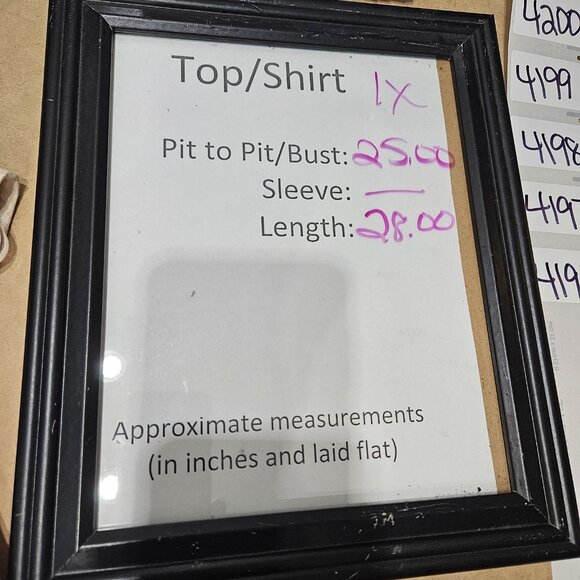 Top/Shirt 1X
Pit to Pit/Bust: 25.00
Sleeve: —
Length: 28.00
Approximate measurements
(in inches and laid flat)
4200
4199
4198
4197
419